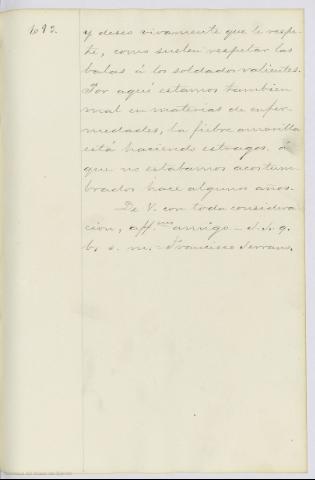 692.
y deseo vivamente que le respe-
te, como suelen respetar las
balas á los soldados valientes.
Por aqui estamos tambien
mal en materias de enfer-
medades, la fiebre amarilla
está haciendo estragos, á
que no estabamos acostum-
brados hace algunos años.
De V. con toda considera
cion, aff.mo amigo – S. S. q.
b. s. m. – Francisco Serrano.